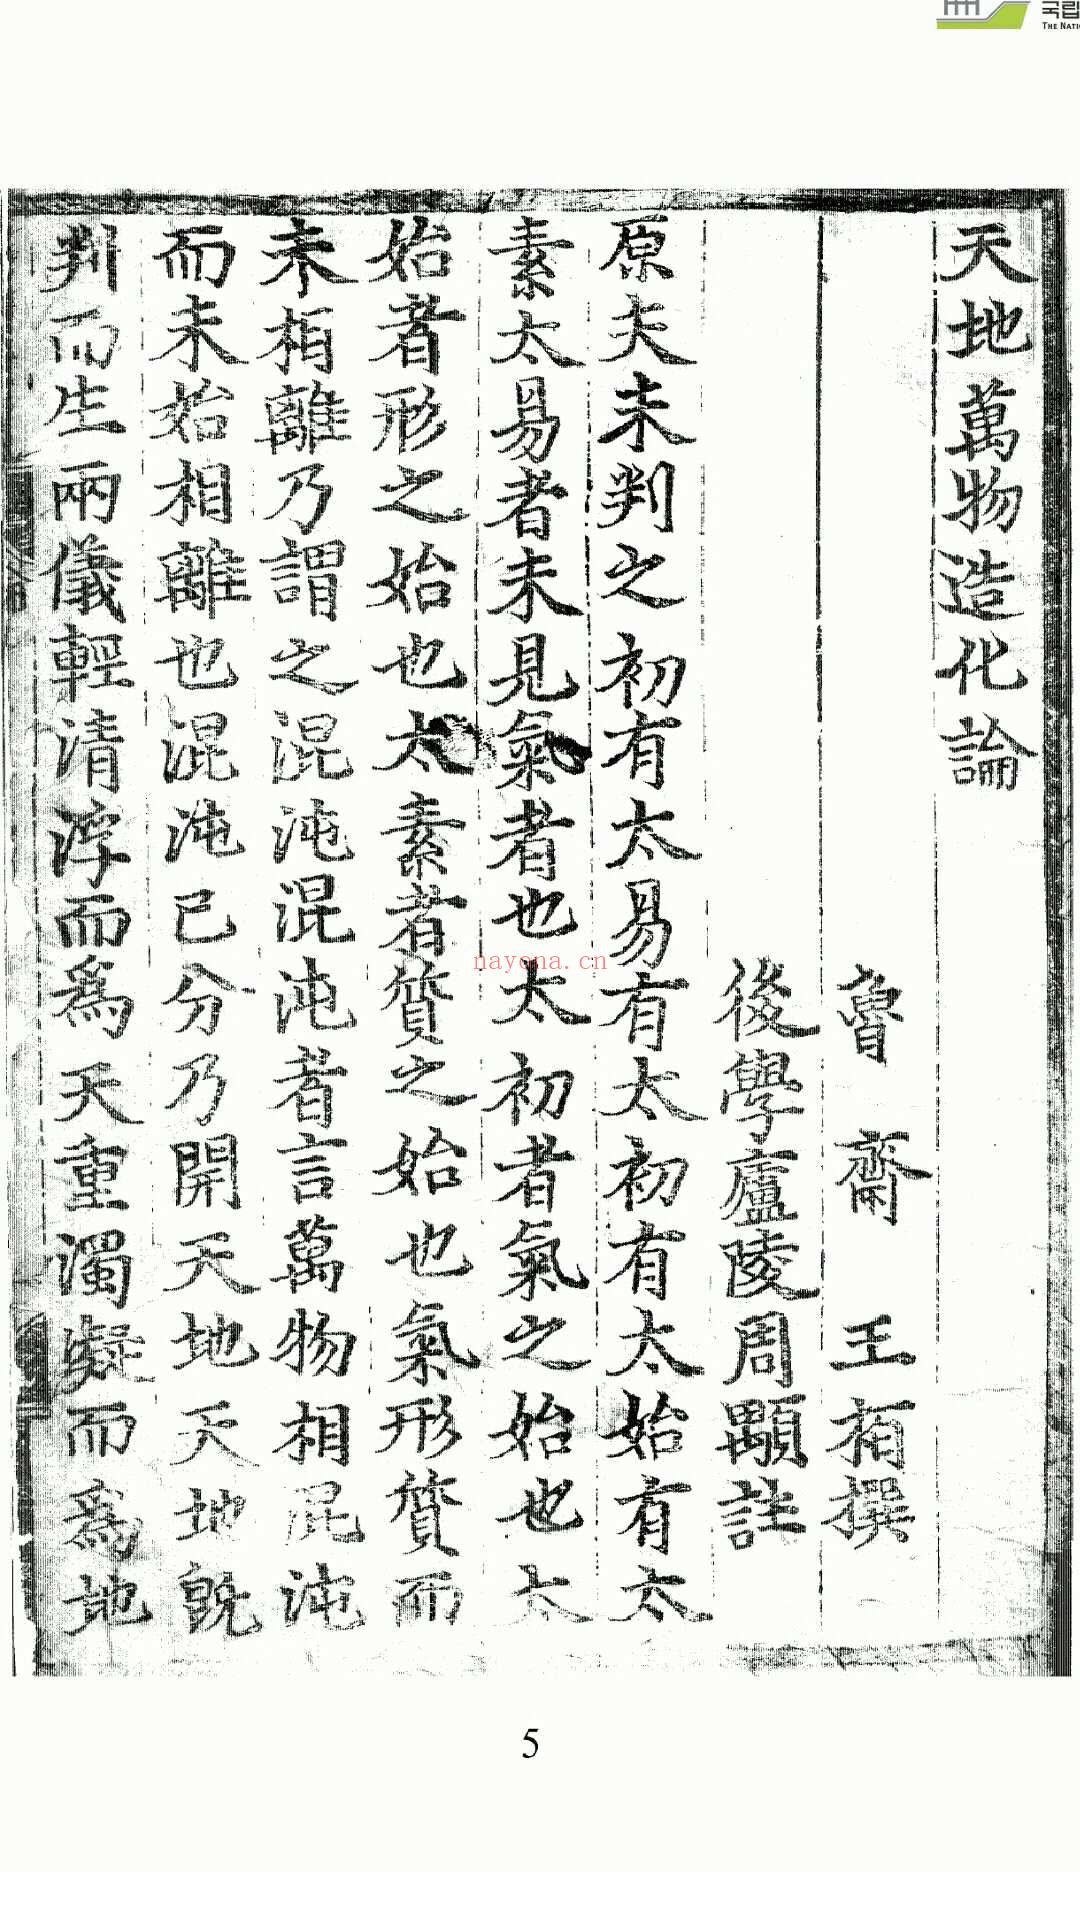 국립
THE NATI
天地萬物造化論
魯齋王栢撰
後學廬陵周顒註
原夫未判之初有太易有太初有太始有太
素太易者未見氣者也太初者氣之始也太
始者形之始也太素者質之始也氣形質而
未相離乃謂之混沌混沌者言萬物相混沌
而未始相離也混沌已分乃開天地天地旣
判而生兩儀輕清浮而爲天重濁凝而爲地
nayona.cn
5